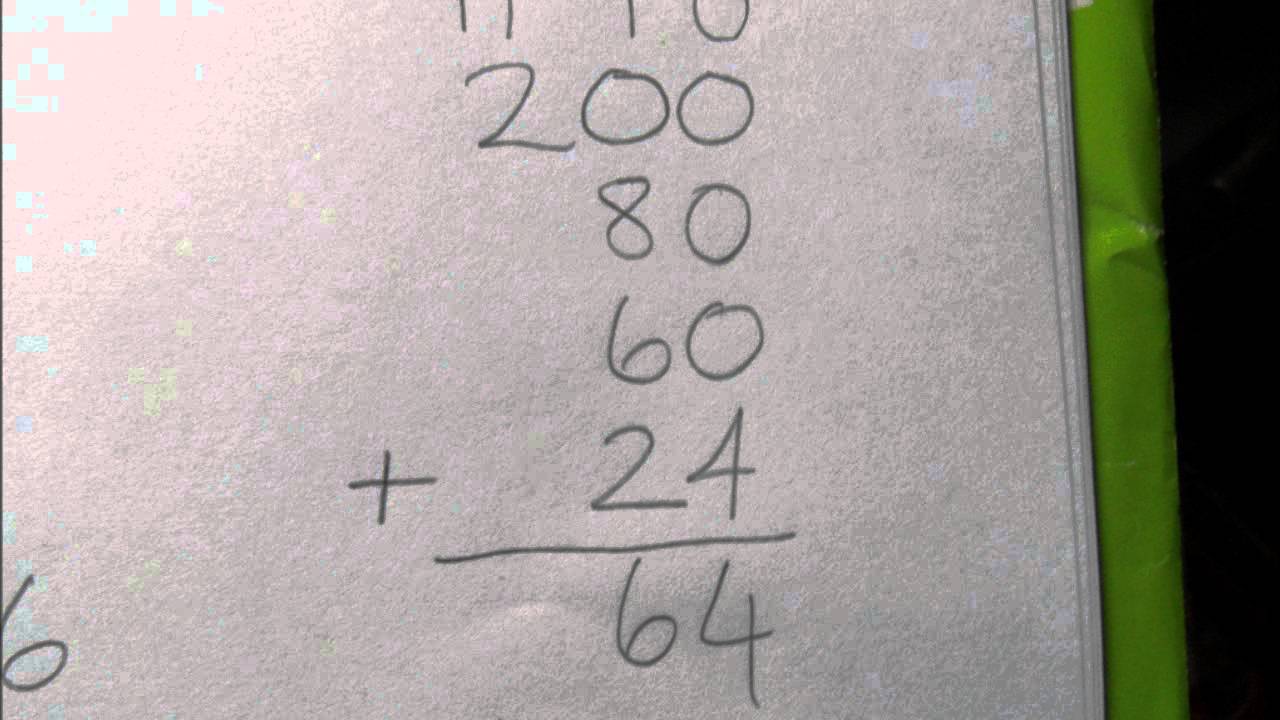 200
80
60
+ 24
64
6